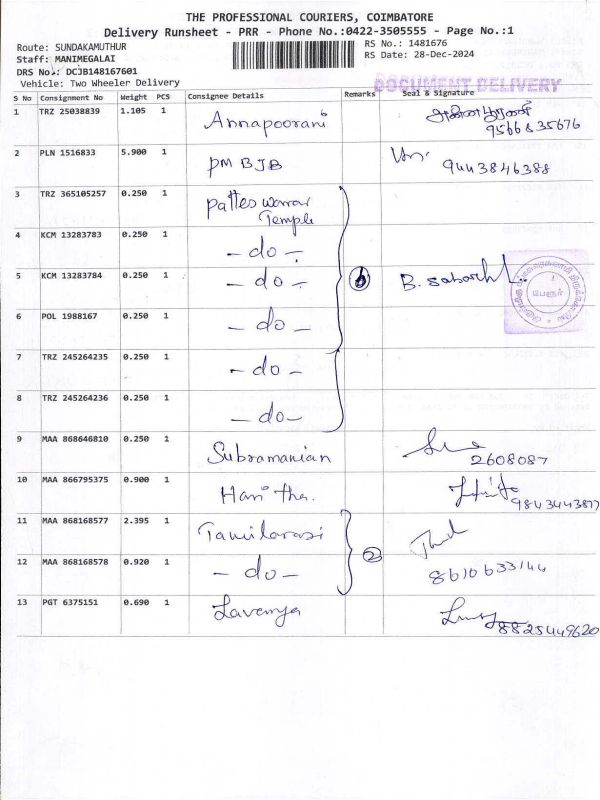 THE PROFESSIONAL COURIERS, COIMBATORE
Delivery Runsheet - PRR - Phone No.:0422-3505555 - Page No.:1
Route: SUNDAKAMUTHUR
Staff: MANIMEGALAI
DRS No.: DCJB148167601
Vehicle: Two Wheeler Delivery
RS No.: 1481676
RS Date: 28-Dec-2024
DOCUMENT DELIVERY
S No Consignment No Weight PCS Consignee Details Remarks Seal & Signature
1 TRZ 25038839 1.105 1 Annapoorani அன்னபூரணி
9566835676
2 PLN 1516833 5.900 1 PM BJB 9443846388
3 TRZ 365105257 0.250 1 Patteswarar
Temple
4 KCM 13283783 0.250 1 - do -
5 KCM 13283784 0.250 1 - do - 6 B. Sabari பேரூர்
6 POL 1988167 0.250 1 - do -
7 TRZ 245264235 0.250 1 - do -
8 TRZ 245264236 0.250 1 - do -
9 MAA 868646810 0.250 1 Subramanian
2608087
10 MAA 866795375 0.900 1 Haritha.
9843443877
11 MAA 868168577 2.395 1 Tamilarasi
12 MAA 868168578 0.920 1 - do - 2 8610633144
13 PGT 6375151 0.690 1 Lavanya
8825449620